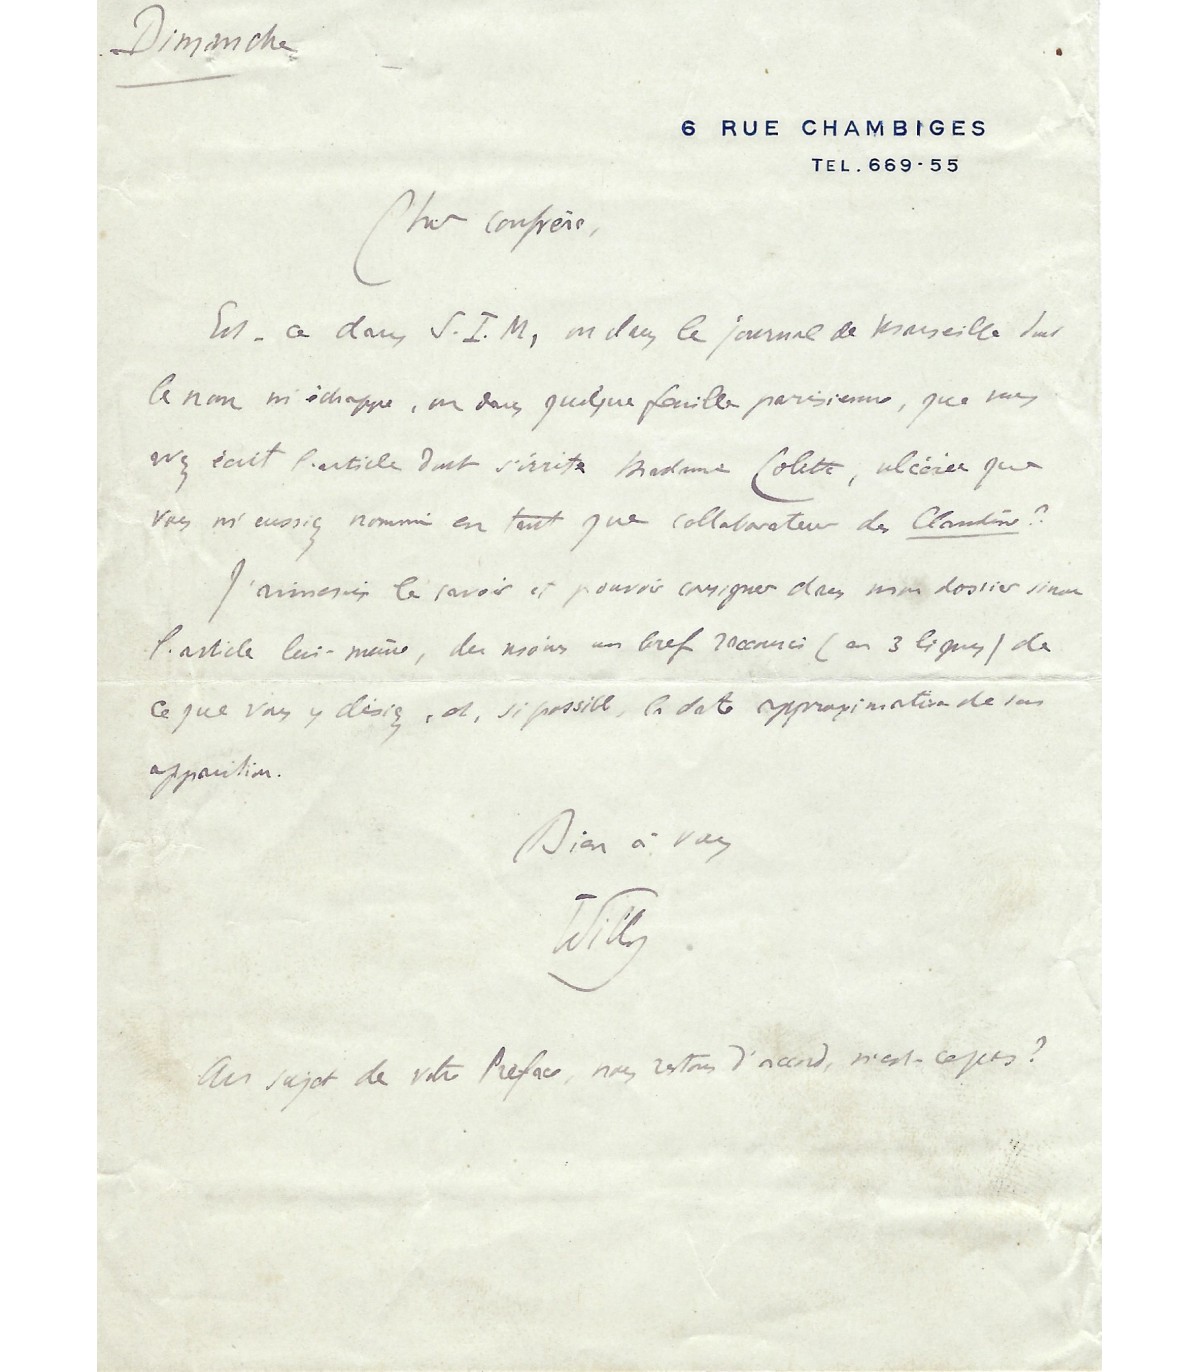 Dimanche
6 RUE CHAMBIGES
TEL. 669-55
Cher confrère,
Est-ce dans S.I.M, ou dans le journal de Marseille dont
le nom m'échappe, ou dans quelque feuille parisienne, que vous
avez écrit l'article dont s'irrite Madame Colette, ulcérée que
vous m'eussiez nommé en tant que collaborateur des Claudine ?
J'aimerais le savoir et pouvoir consigner dans mon dossier sinon
l'article lui-même, du moins un bref raccourci (en 3 lignes) de
ce que vous y disiez, et, si possible, la date approximative de son
apparition.
Bien à vous
Willy
Au sujet de votre Préface, nous restons d'accord, n'est-ce pas ?